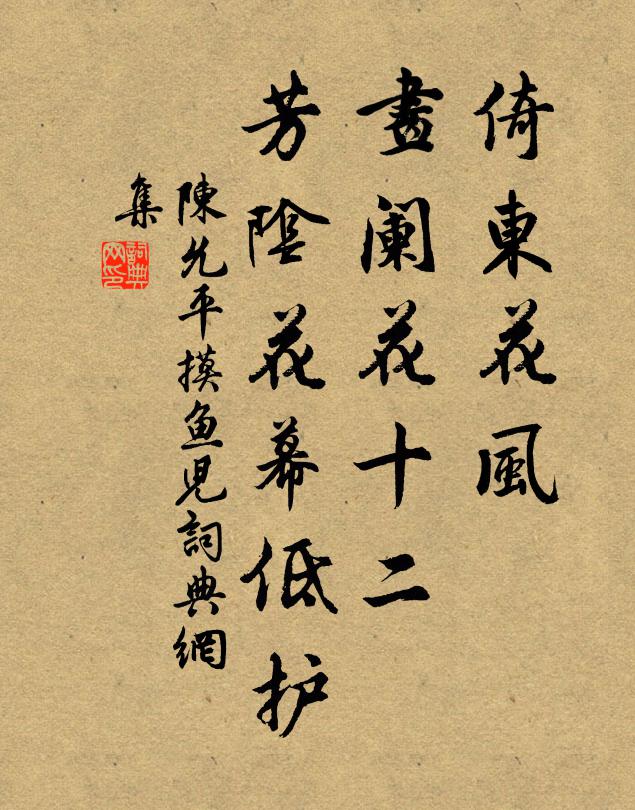 倚東花風
畫闌花十二
芳陰花幕低护
陳允平摸鱼児詞典網
集
詞典
网印